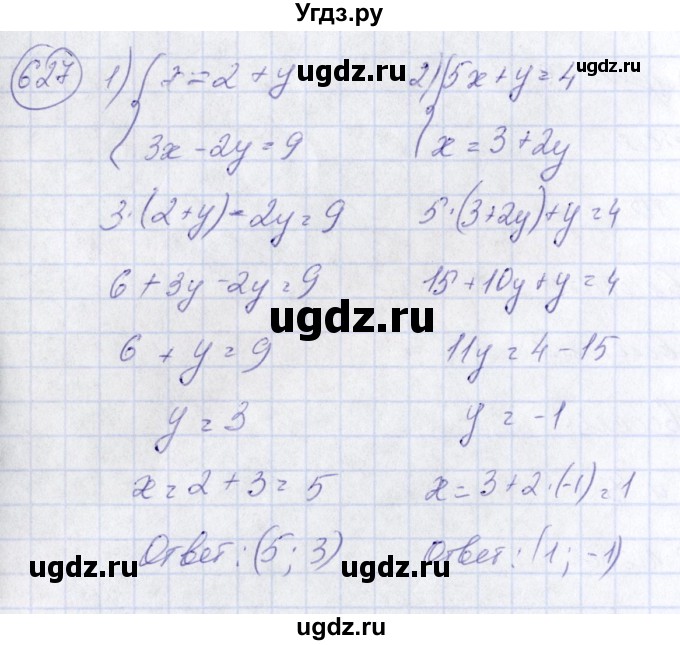 Угдз.ру
627
1) { x = 2 + y
3x - 2y = 9
3·(2+y) - 2y = 9
6 + 3y - 2y = 9
6 + y = 9
y = 3
x = 2 + 3 = 5
Ответ: (5; 3)
2) { 5x + y = 4
x = 3 + 2y
5·(3+2y) + y = 4
15 + 10y + y = 4
11y = 4 - 15
y = -1
x = 3 + 2·(-1) = 1
Ответ: (1; -1)
ugdz.ru
ugdz.ru
ugdz.ru
ugdz.ru
ugdz.ru
ugdz.ru